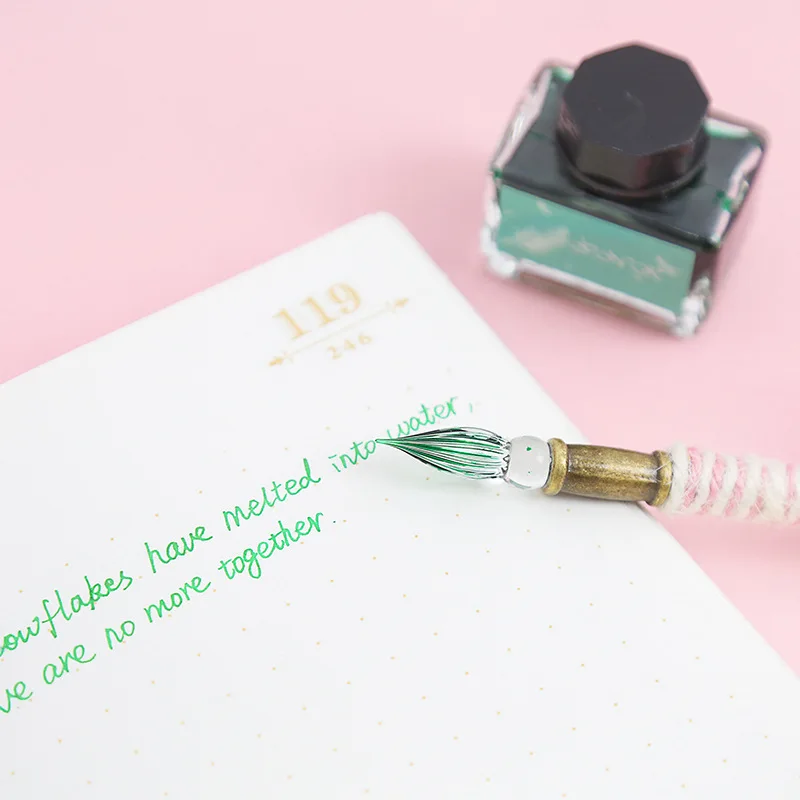 119
246
owflakes have melted into water,
ve are no more together.